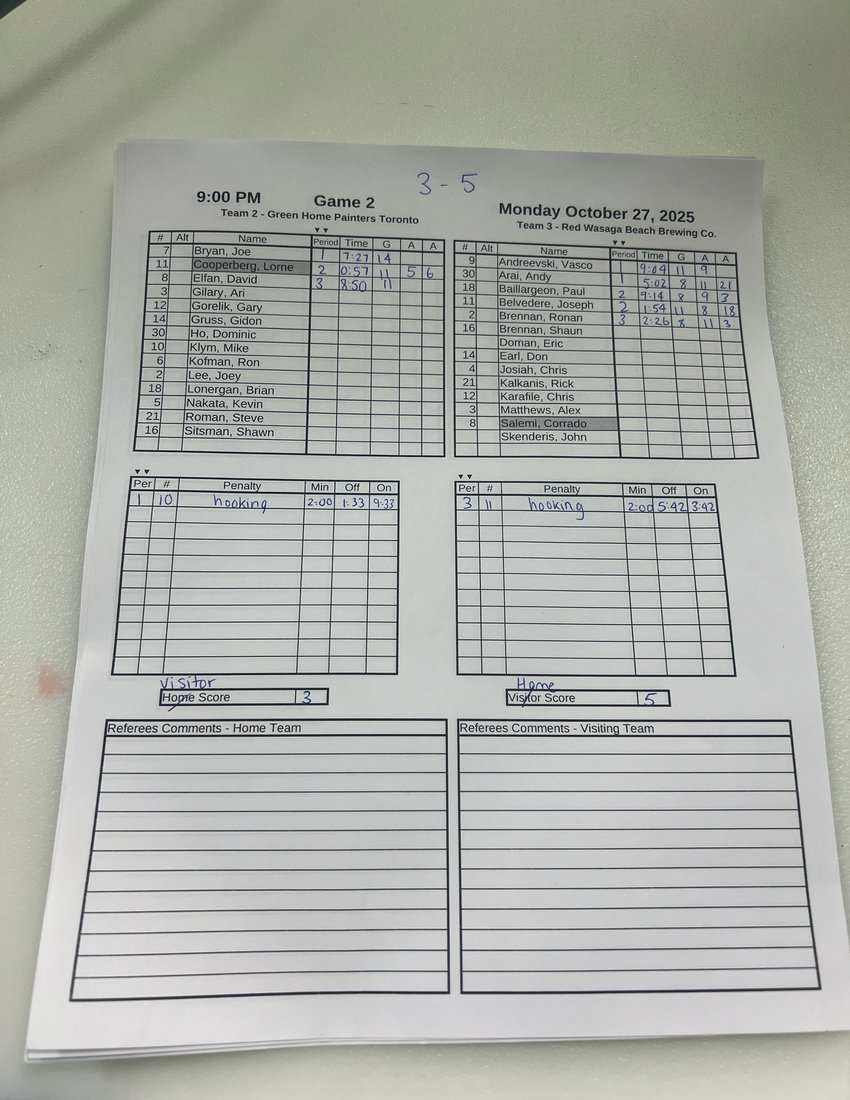 3 - 5
9:00 PM Game 2 Monday October 27, 2025
Team 2 - Green Home Painters Toronto
▼▼
# Alt Name Period Time G A A
7 Bryan, Joe 1 7:27 14
11 Cooperberg, Lorne 2 0:57 11 5 6
8 Elfan, David 3 8:50 11
3 Gilary, Ari
12 Gorelik, Gary
14 Gruss, Gidon
30 Ho, Dominic
10 Klym, Mike
6 Kofman, Ron
2 Lee, Joey
18 Lonergan, Brian
5 Nakata, Kevin
21 Roman, Steve
16 Sitsman, Shawn
Team 3 - Red Wasaga Beach Brewing Co.
▼▼
# Alt Name Period Time G A A
9 Andreevski, Vasco 1 9:04 11 9
30 Arai, Andy 1 5:02 8 11 21
18 Baillargeon, Paul 2 9:14 8 9 3
11 Belvedere, Joseph 2 1:54 11 8 18
2 Brennan, Ronan 3 2:26 8 11 3
16 Brennan, Shaun
Doman, Eric
14 Earl, Don
4 Josiah, Chris
21 Kalkanis, Rick
12 Karafile, Chris
3 Matthews, Alex
8 Salemi, Corrado
Skenderis, John
▼▼
Per # Penalty Min Off On
1 10 hooking 2:00 1:33 9:33
▼▼
Per # Penalty Min Off On
3 11 hooking 2:00 5:42 3:42
Visitor
Home Score 3
Home
Visitor Score 5
Referees Comments - Home Team
Referees Comments - Visiting Team